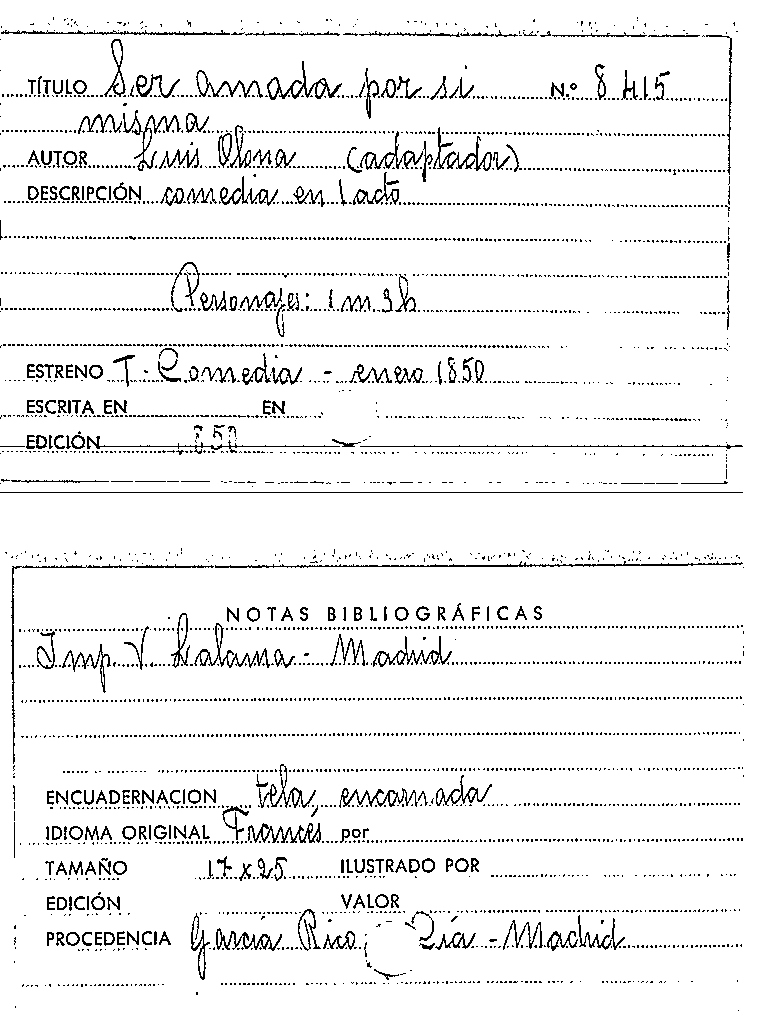 TÍTULO Ser amada por si N.º 8415
misma
AUTOR Luis Olona (adaptador)
DESCRIPCIÓN comedia en 1 acto
Personajes: 1 m. 3 h
ESTRENO T. Comedia - enero 1850
ESCRITA EN EN
EDICIÓN 1850
NOTAS BIBLIOGRÁFICAS
Imp. V. Lalama - Madrid
ENCUADERNACION tela, encarnada
IDIOMA ORIGINAL Francés por
TAMAÑO 17 x 25 ILUSTRADO POR
EDICIÓN VALOR
PROCEDENCIA García Rico Cía - Madrid